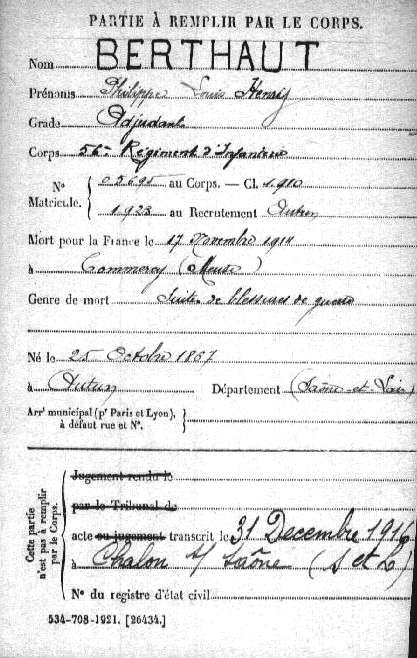 PARTIE À REMPLIR PAR LE CORPS.
Nom BERTHAUT
Prénoms Philippe Louis Henry
Grade Adjudant
Corps 56e Régiment d'Infanterie
No Matricule. { 05695 au Corps. — Cl. 1910
1923 au Recrutement Autun
Mort pour la France le 17 Novembre 1914
à Commercy (Meuse)
Genre de mort Suites de blessures de guerre
Né le 25 Octobre 1867
à Autun Département (Saône-et-Loire)
Arrt municipal (pr Paris et Lyon),
à défaut rue et No.
Cette partie n'est pas à remplir par le Corps.
Jugement rendu le
par le Tribunal de
acte ou jugement transcrit le 31 Decembre 1916
à Chalon s/ Saône (S et L)
No du registre d'état civil
534-708-1921. [26434.]